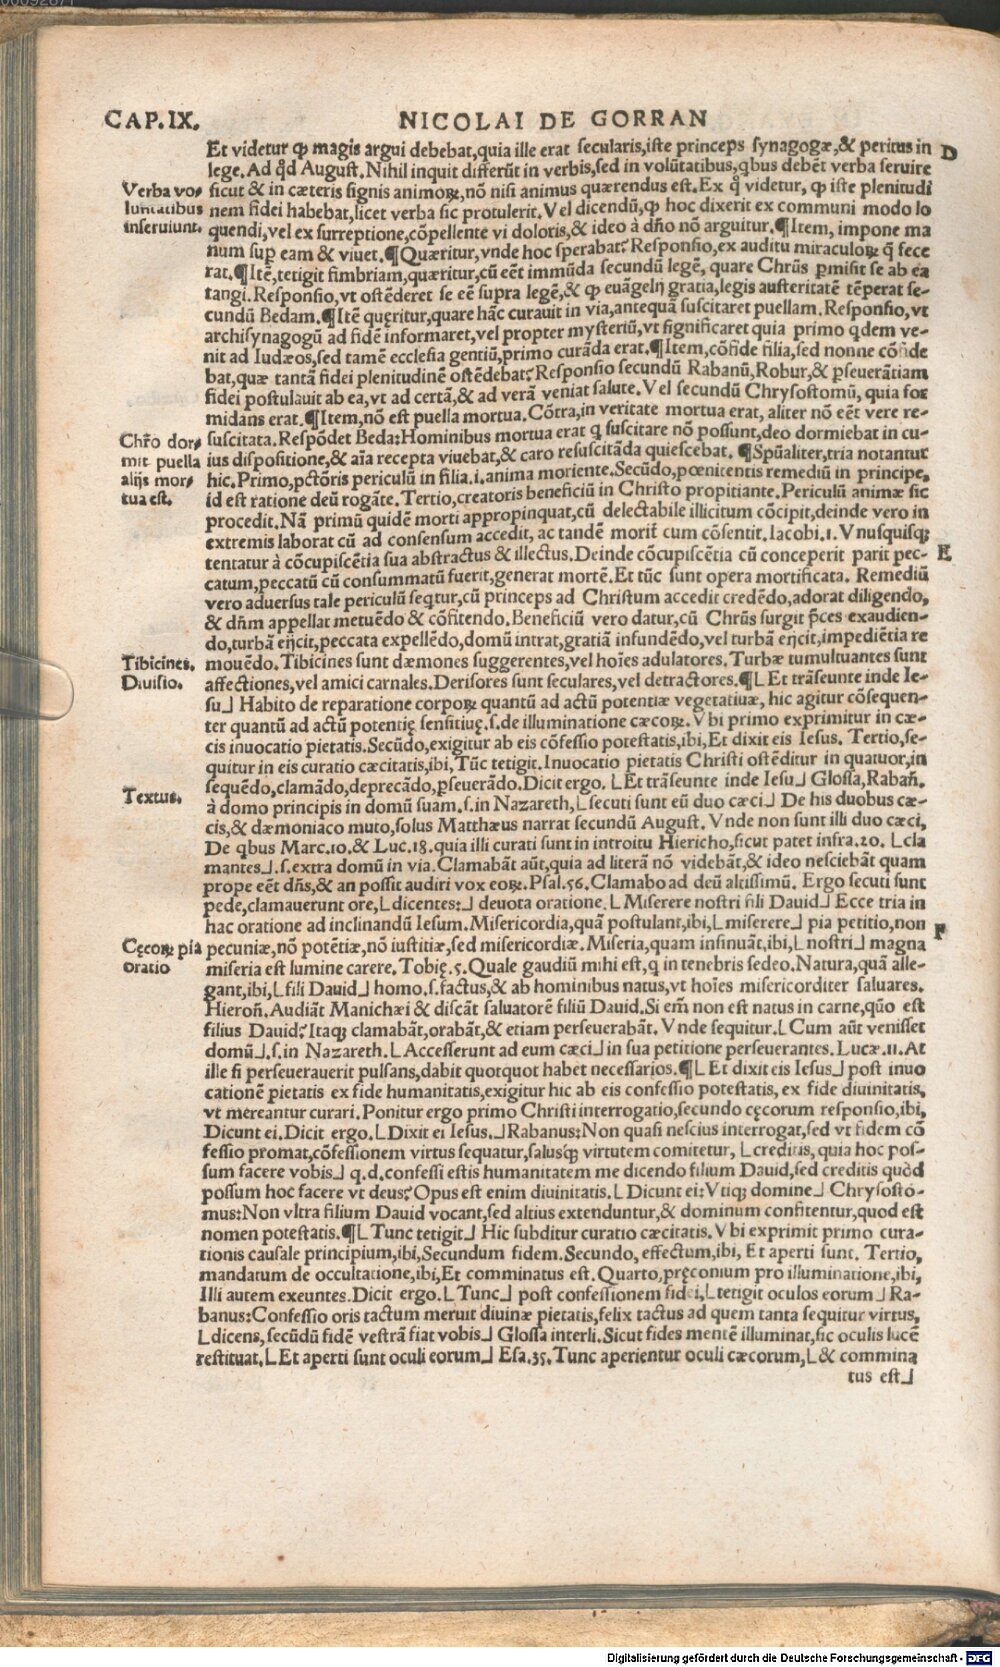 CAP. IX.
NICOLAI DE GORRAN
Et videtur ꝙ magis argui debebat, quia ille erat secularis, iste princeps synagogæ, & peritus in
D
lege. Ad qd̃ August. Nihil inquit differũt in verbis, sed in volũtatibus, qbus debẽt verba seruire
Verba vo⸗
luntatibus
inseruiunt.
sicut & in cæteris signis animoꝝ, nõ nisi animus quærendus est. Ex q̃ videtur, ꝙ iste plenitudi
nem fidei habebat, licet verba sic protulerit. Vel dicendũ, ꝙ hoc dixerit ex communi modo lo
quendi, vel ex surreptione, cõpellente vi doloris, & ideo à dño nõ arguitur. ¶ Item, impone ma
num suꝑ eam & viuet. ¶ Quæritur, vnde hoc sperabat? Responsio, ex auditu miraculoꝝ q̃ fece
rat. ¶ Itẽ, tetigit fimbriam, quæritur, cũ eẽt immũda secundũ legẽ, quare Chrũs ꝑmisit se ab ea
tangi. Responsio, vt ostẽderet se eẽ supra legẽ, & ꝙ euãgelij gratia, legis austeritatẽ tẽperat se-
cundũ Bedam. ¶ Itẽ quęritur, quare hãc curauit in via, antequã suscitaret puellam. Responsio, vt
archisynagogũ ad fidẽ informaret, vel propter mysteriũ, vt significaret quia primo qdem ve-
nit ad Iudæos, sed tamẽ ecclesia gentiũ, primo curãda erat. ¶ Item, cõfide filia, sed nonne cõfide
bat, quæ tantã fidei plenitudinẽ ostẽdebat? Responsio secundũ Rabanũ, Robur, & ꝑseuerãtiam
fidei postulauit ab ea, vt ad certã, & ad verã veniat salute. Vel secundũ Chrysostomũ, quia for
midans erat. ¶ Item, nõ est puella mortua. Cõtra, in veritate mortua erat, aliter nõ eẽt vere re-
Chr̃o dor⸗
mit puella
alijs mor⸗
tua est.
suscitata. Respõdet Beda: Hominibus mortua erat q suscitare nõ possunt, deo dormiebat in cu-
ius dispositione, & aĩa recepta viuebat, & caro resuscitãda quiescebat. ¶ Spũaliter, tria notantur
hic. Primo, pctõris periculũ in filia .i. anima moriente. Secũdo, pœnitentis remediũ in principe,
id est ratione deũ rogãte. Tertio, creatoris beneficiũ in Christo propitiante. Periculũ animæ sic
procedit. Nã primũ quidẽ morti appropinquat, cũ delectabile illicitum cõcipit, deinde vero in
extremis laborat cũ ad consensum accedit, ac tandẽ morit̃ cum cõsentit. Iacobi. 1. Vnusquisqꝫ
tentatur à cõcupiscẽtia sua abstractus & illectus. Deinde cõcupiscẽtia cũ conceperit parit pec-
E
catum, peccatũ cũ consummatũ fuerit, generat mortẽ. Et tũc sunt opera mortificata. Remediũ
vero aduersus tale periculũ seqtur, cũ princeps ad Christum accedit credẽdo, adorat diligendo,
& dñm appellat metuẽdo & cõfitendo. Beneficiũ vero datur, cũ Chrũs surgit p̃ces exaudien-
do, turbã eijcit, peccata expellẽdo, domũ intrat, gratiã infundẽdo, vel turbã eijcit, impediẽtia re
Tibicines.
Diuisio.
mouẽdo. Tibicines sunt dæmones suggerentes, vel hoĩes adulatores. Turbæ tumultuantes sunt
affectiones, vel amici carnales. Derisores sunt seculares, vel detractores. ¶ ⌊ Et trãseunte inde Ie-
su ⌋ Habito de reparatione corpoꝝ quantũ ad actũ potentiæ vegetatiuæ, hic agitur cõsequen-
ter quantũ ad actũ potentię sensitiuę, .s. de illuminatione cæcoꝝ. Vbi primo exprimitur in cæ-
cis inuocatio pietatis. Secũdo, exigitur ab eis cõfessio potestatis, ibi, Et dixit eis Iesus. Tertio, se-
quitur in eis curatio cæcitatis, ibi, Tũc tetigit. Inuocatio pietatis Christi ostẽditur in quatuor, in
sequẽdo, clamãdo, deprecãdo, ꝑseuerãdo. Dicit ergo. ⌊ Et trãseunte inde Iesu ⌋ Glossa, Rabañ.
Textus.
à domo principis in domũ suam. s. in Nazareth, ⌊ secuti sunt eũ duo cæci ⌋ De his duobus cæ-
cis, & dæmoniaco muto, solus Matthæus narrat secundũ August. Vnde non sunt illi duo cæci,
De qbus Marc. 10. & Luc. 18. quia illi curati sunt in introitu Hiericho, sicut patet infra. 20. ⌊ cla
mantes ⌋ .s. extra domũ in via. Clamabãt aũt, quia ad literã nõ videbãt, & ideo nesciebãt quam
prope eẽt dñs, & an possit audiri vox eoꝝ. Psal. 56. Clamabo ad deũ altissimũ. Ergo secuti sunt
pede, clamauerunt ore, ⌊ dicentes: ⌋ deuota oratione. ⌊ Miserere nostri fili Dauid ⌋ Ecce tria in
hac oratione ad inclinandũ Iesum. Misericordia, quã postulant, ibi, ⌊ miserere ⌋ pia petitio, non
F
Cęcoꝝ pia
oratio
pecuniæ, nõ potẽtiæ, nõ iustitiæ, sed misericordiæ. Miseria, quam insinuãt, ibi, ⌊ nostri ⌋ magna
miseria est lumine carere. Tobię. 5. Quale gaudiũ mihi est, q in tenebris sedeo. Natura, quã alle-
gant, ibi, ⌊ fili Dauid ⌋ homo. s. factus, & ab hominibus natus, vt hoĩes misericorditer saluares.
Hieroñ. Audiãt Manichæi & discãt saluatorẽ filiũ Dauid. Si em̃ non est natus in carne, qũo est
filius Dauid? Itaqꝫ clamabãt, orabãt, & etiam perseuerabãt. Vnde sequitur. ⌊ Cum aũt venisset
domũ ⌋ .s. in Nazareth. ⌊ Accesserunt ad eum cæci ⌋ in sua petitione perseuerantes. Lucæ. 11. At
ille si perseuerauerit pulsans, dabit quotquot habet necessarios. ¶ ⌊ Et dixit eis Iesus ⌋ post inuo
cationẽ pietatis ex fide humanitatis, exigitur hic ab eis confessio potestatis, ex fide diuinitatis,
vt mereantur curari. Ponitur ergo primo Christi interrogatio, secundo cęcorum responsio, ibi,
Dicunt ei. Dicit ergo. ⌊ Dixit ei Iesus. ⌋ Rabanus: Non quasi nescius interrogat, sed vt fidem cõ
fessio promat, cõfessionem virtus sequatur, salusqꝫ virtutem comitetur, ⌊ creditis, quia hoc pos-
sum facere vobis ⌋ q. d. confessi estis humanitatem me dicendo filium Dauid, sed creditis quòd
possum hoc facere vt deus? Opus est enim diuinitatis. ⌊ Dicunt ei: Vtiqꝫ domine ⌋ Chrysosto-
mus: Non vltra filium Dauid vocant, sed altius extenduntur, & dominum confitentur, quod est
nomen potestatis. ¶ ⌊ Tunc tetigit ⌋ Hic subditur curatio cæcitatis. Vbi exprimit primo cura-
tionis causale principium, ibi, Secundum fidem. Secundo, effectum, ibi, Et aperti sunt. Tertio,
mandatum de occultatione, ibi, Et comminatus est. Quarto, pręconium pro illuminatione, ibi,
Illi autem exeuntes. Dicit ergo. ⌊ Tunc ⌋ post confessionem fidei, ⌊ tetigit oculos eorum ⌋ Ra-
banus: Confessio oris tactum meruit diuinæ pietatis, felix tactus ad quem tanta sequitur virtus,
⌊ dicens, secũdũ fidẽ vestrã fiat vobis ⌋ Glossa interli. Sicut fides mentẽ illuminat, sic oculis lucẽ
restituat. ⌊ Et aperti sunt oculi eorum ⌋ Esa. 35. Tunc aperientur oculi cæcorum, ⌊ & commina
tus est ⌋
Digitalisierung gefördert durch die Deutsche Forschungsgemeinschaft - DFG